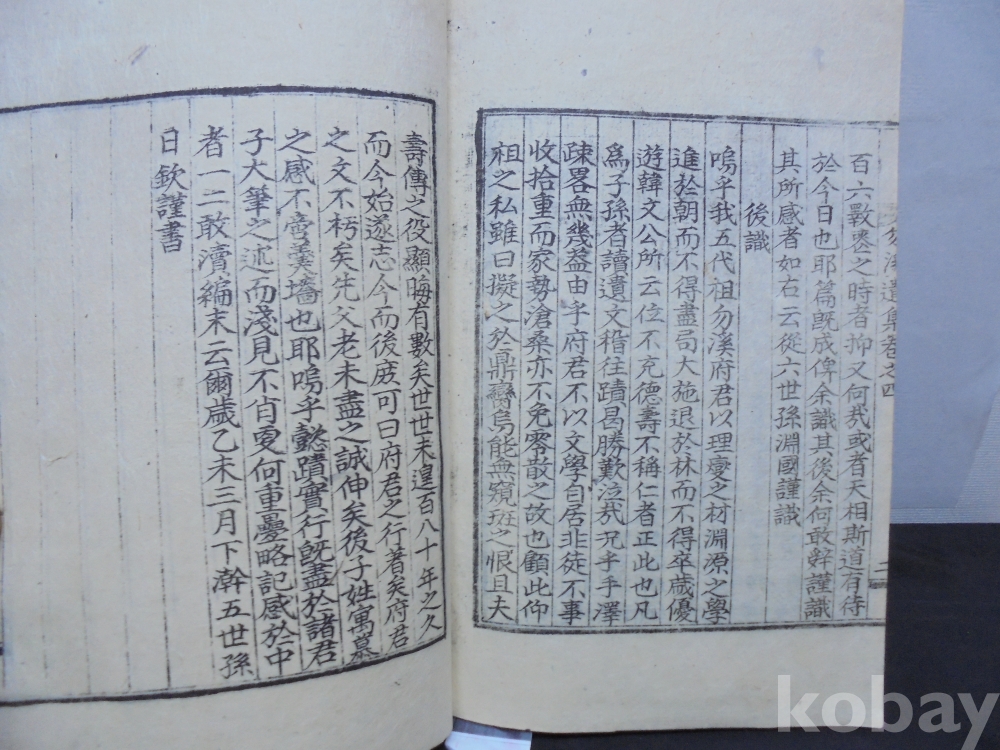 勿溪遺集卷之四
二
百六數患之時者抑又何㢤或者天相斯道有待
於今日也耶篇旣成俾余識其後余何敢辭謹識
其所感者如右云從六世孫淵國謹識
後識
嗚乎我五代祖勿溪府君以理變之材淵源之學
進於朝而不得盡局大施退於林而不得卒歲優
遊韓文公所云位不充德壽不稱仁者正此也凡
爲子孫者讀遺文稽往蹟曷勝歎泣㢤况手澤
疎畧無幾葢由乎府君不以文學自居非徒不事
收拾重而家勢滄桑亦不免零散之故也顧此仰
祖之私雖曰擬之於鼎臠烏能無窺斑之恨且夫
壽傳之役顯晦有數矣世世未遑百八十年之久
而今始遂志今而後庶可曰府君之行著矣府君
之文不朽矣先父老未盡之誠伸矣後子姓寓慕
之感不啻羹墻也耶嗚乎懿蹟實行旣盡於諸君
子大筆之述而淺見不肖更何重疊略記感於中
者一二敢瀆編末云爾歲乙未三月下澣五世孫
日欽謹書
kobay